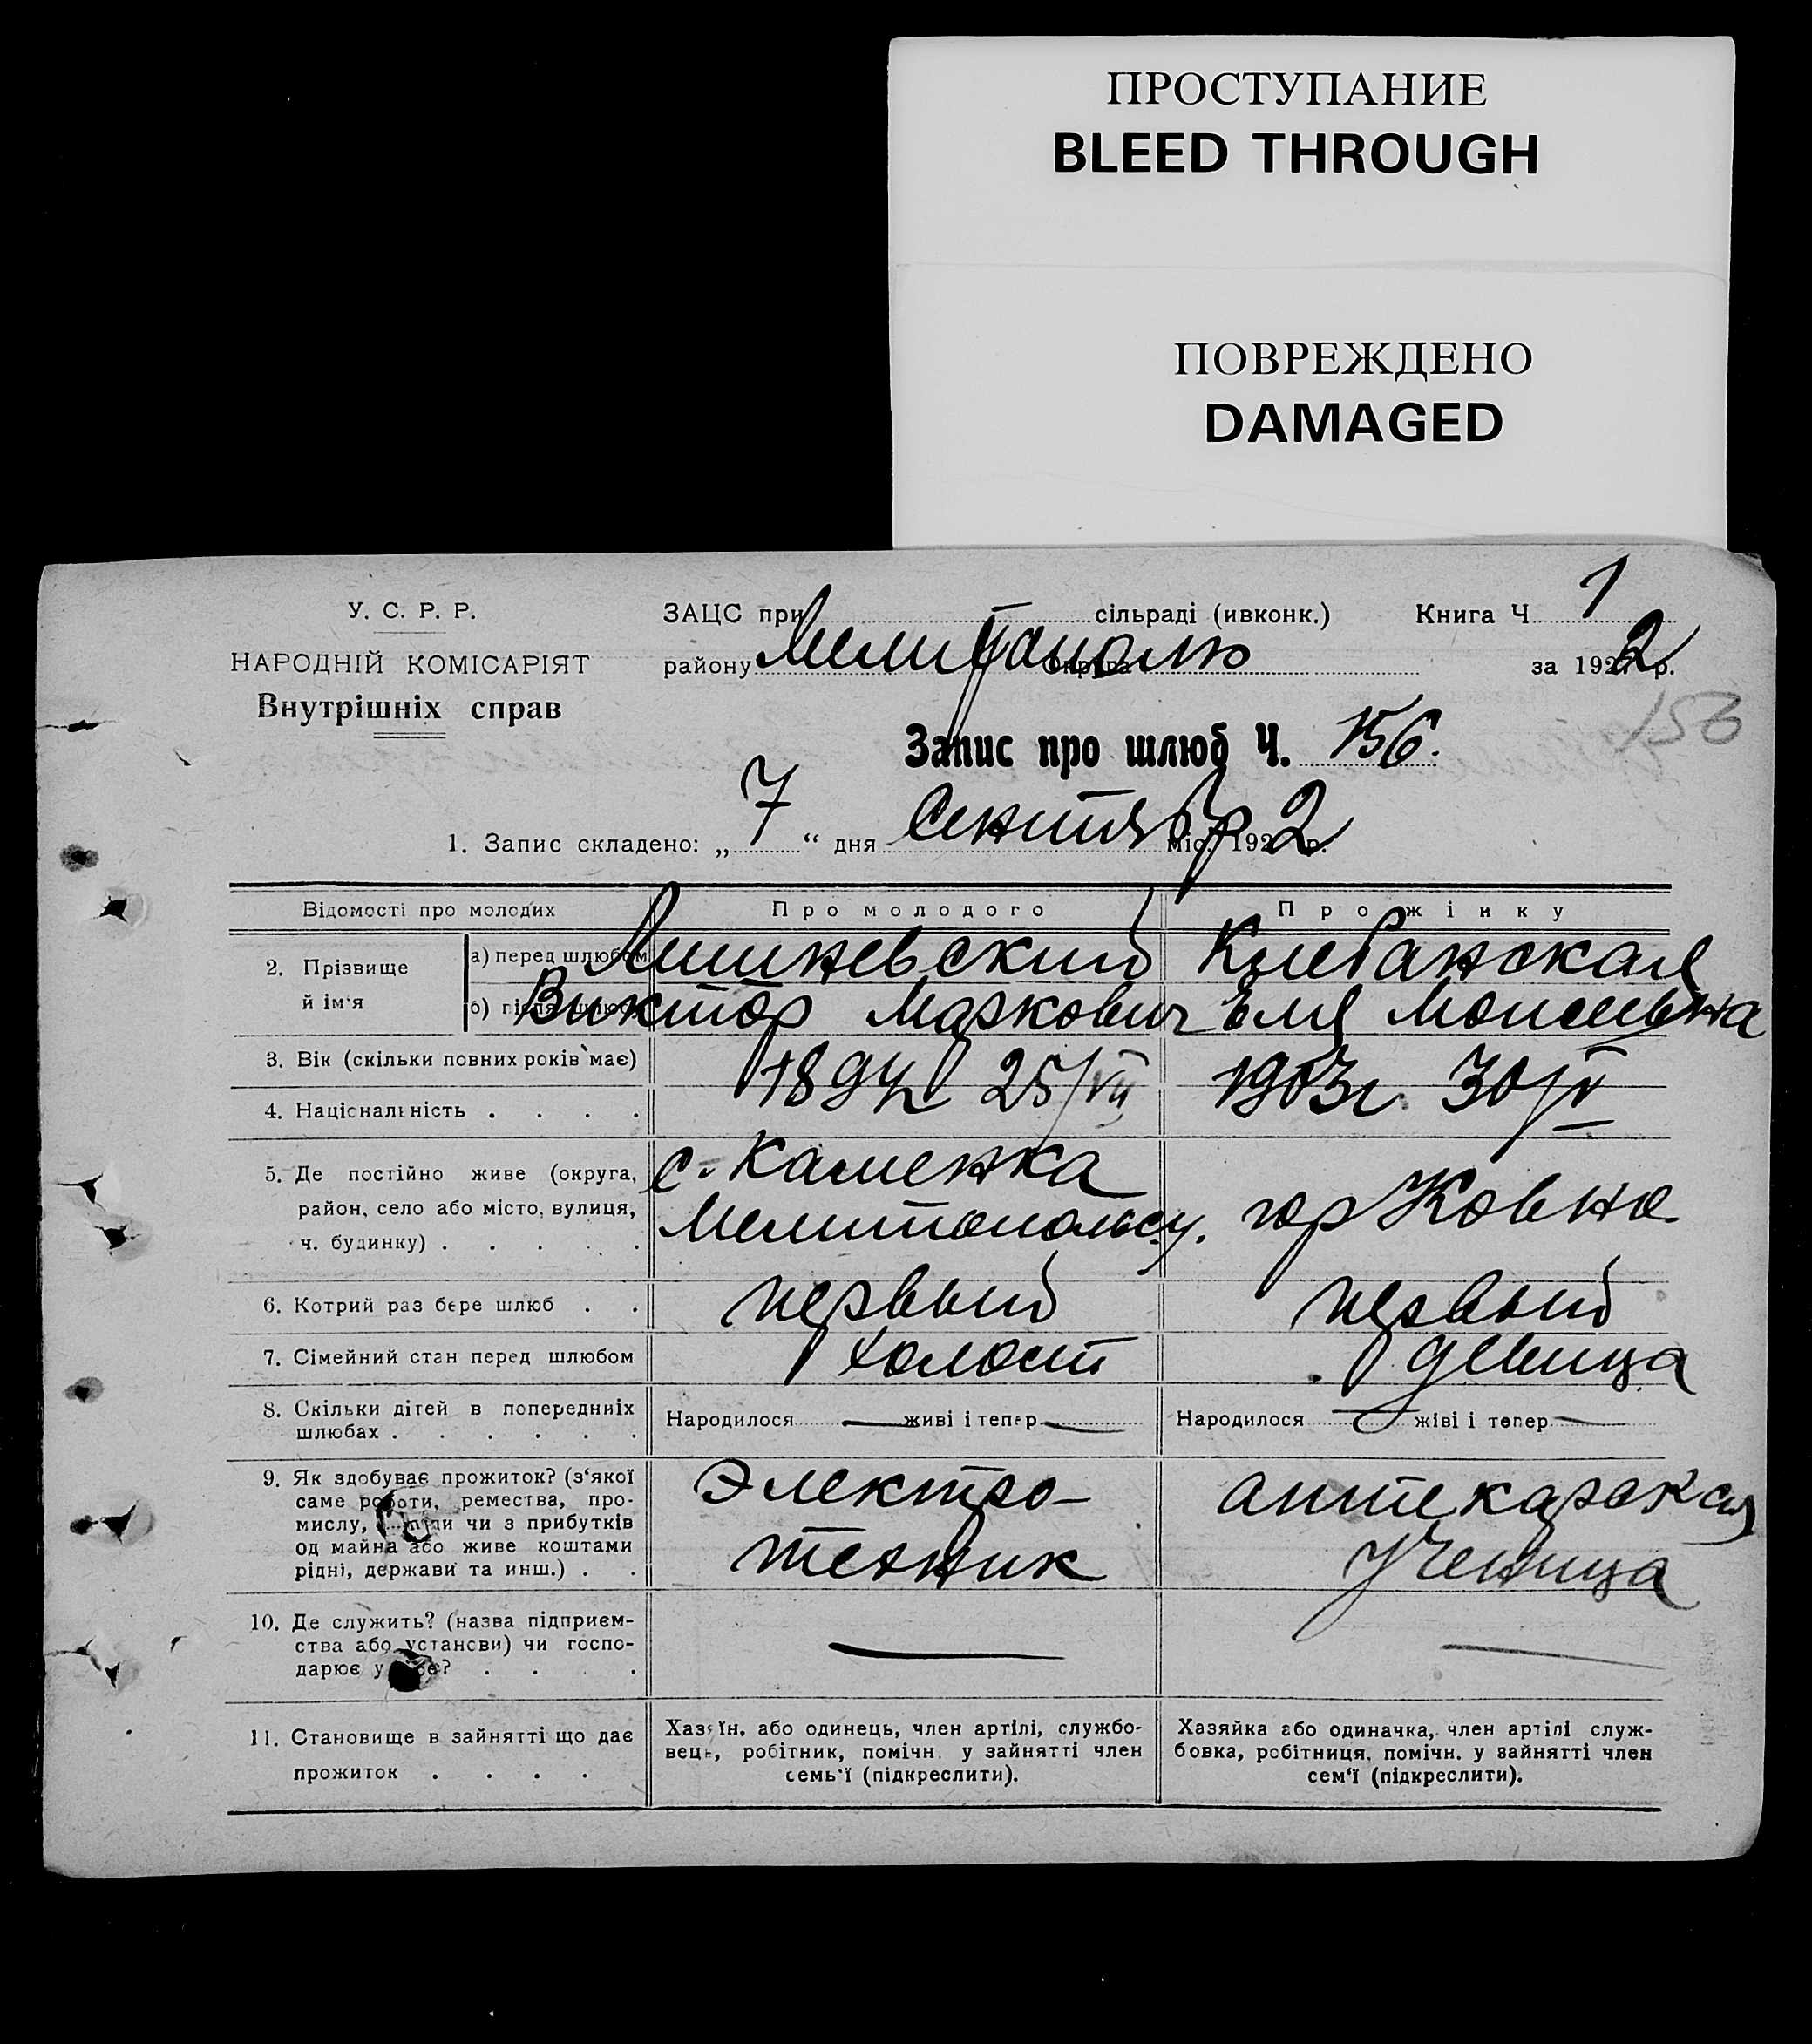 ПРОСТУПАНИЕ
BLEED THROUGH
ПОВРЕЖДЕНО
DAMAGED
У. С. Р. Р.
НАРОДНІЙ КОМІСАРІЯТ
Внутрішніх справ
ЗАЦС при сільраді (ивконк.) Книга Ч 1
району Мелитополь Округа за 1922 р.
156
Запис про шлюб Ч. 156.
1. Запис складено: „ 7 “ дня Сентябр міс. 1922 р.
Відомості про молодих Про молодого Про жінку
2. Прізвище й ім‘я
а) перед шлюбом Лишневский Клебанская
б) після шлюбу Виктор Маркович Еля Моисеевна
3. Вік (скільки повних років має) 1894 25/VII 1903г. 30/IV
4. Національність . . . .
5. Де постійно живе (округа, район, село або місто, вулиця, ч. будинку) . . . . .
с. Каменка
Мелитопольс. у. гор Ковно
6. Котрий раз бере шлюб . . первый первый
7. Сімейний стан перед шлюбом холост девица
8. Скільки дітей в попередниіх шлюбах . . . . . .
Народилося — живі і тепер — Народилося — жіві і тепер —
9. Як здобуває прожиток? (з‘якої
саме роботи, ремества, про-
мислу, чи з прибутків
од майна або живе коштами
рідні, держави та инш.) . .
Электро- аптекарская
техник ученица
10. Де служить? (назва підприєм-
ства або установи) чи госпо-
дарює у себе? . . . .
— —
11. Становище в зайнятті що дає
прожиток . . . .
Хазяїн, або одинець, член артілі, службо-
вець, робітник, помічн. у зайнятті член
семь‘ї (підкреслити).
Хазяйка або одиначка, член артілі служ-
бовка, робітниця, помічн. у зайнятті член
сем‘ї (підкреслити).